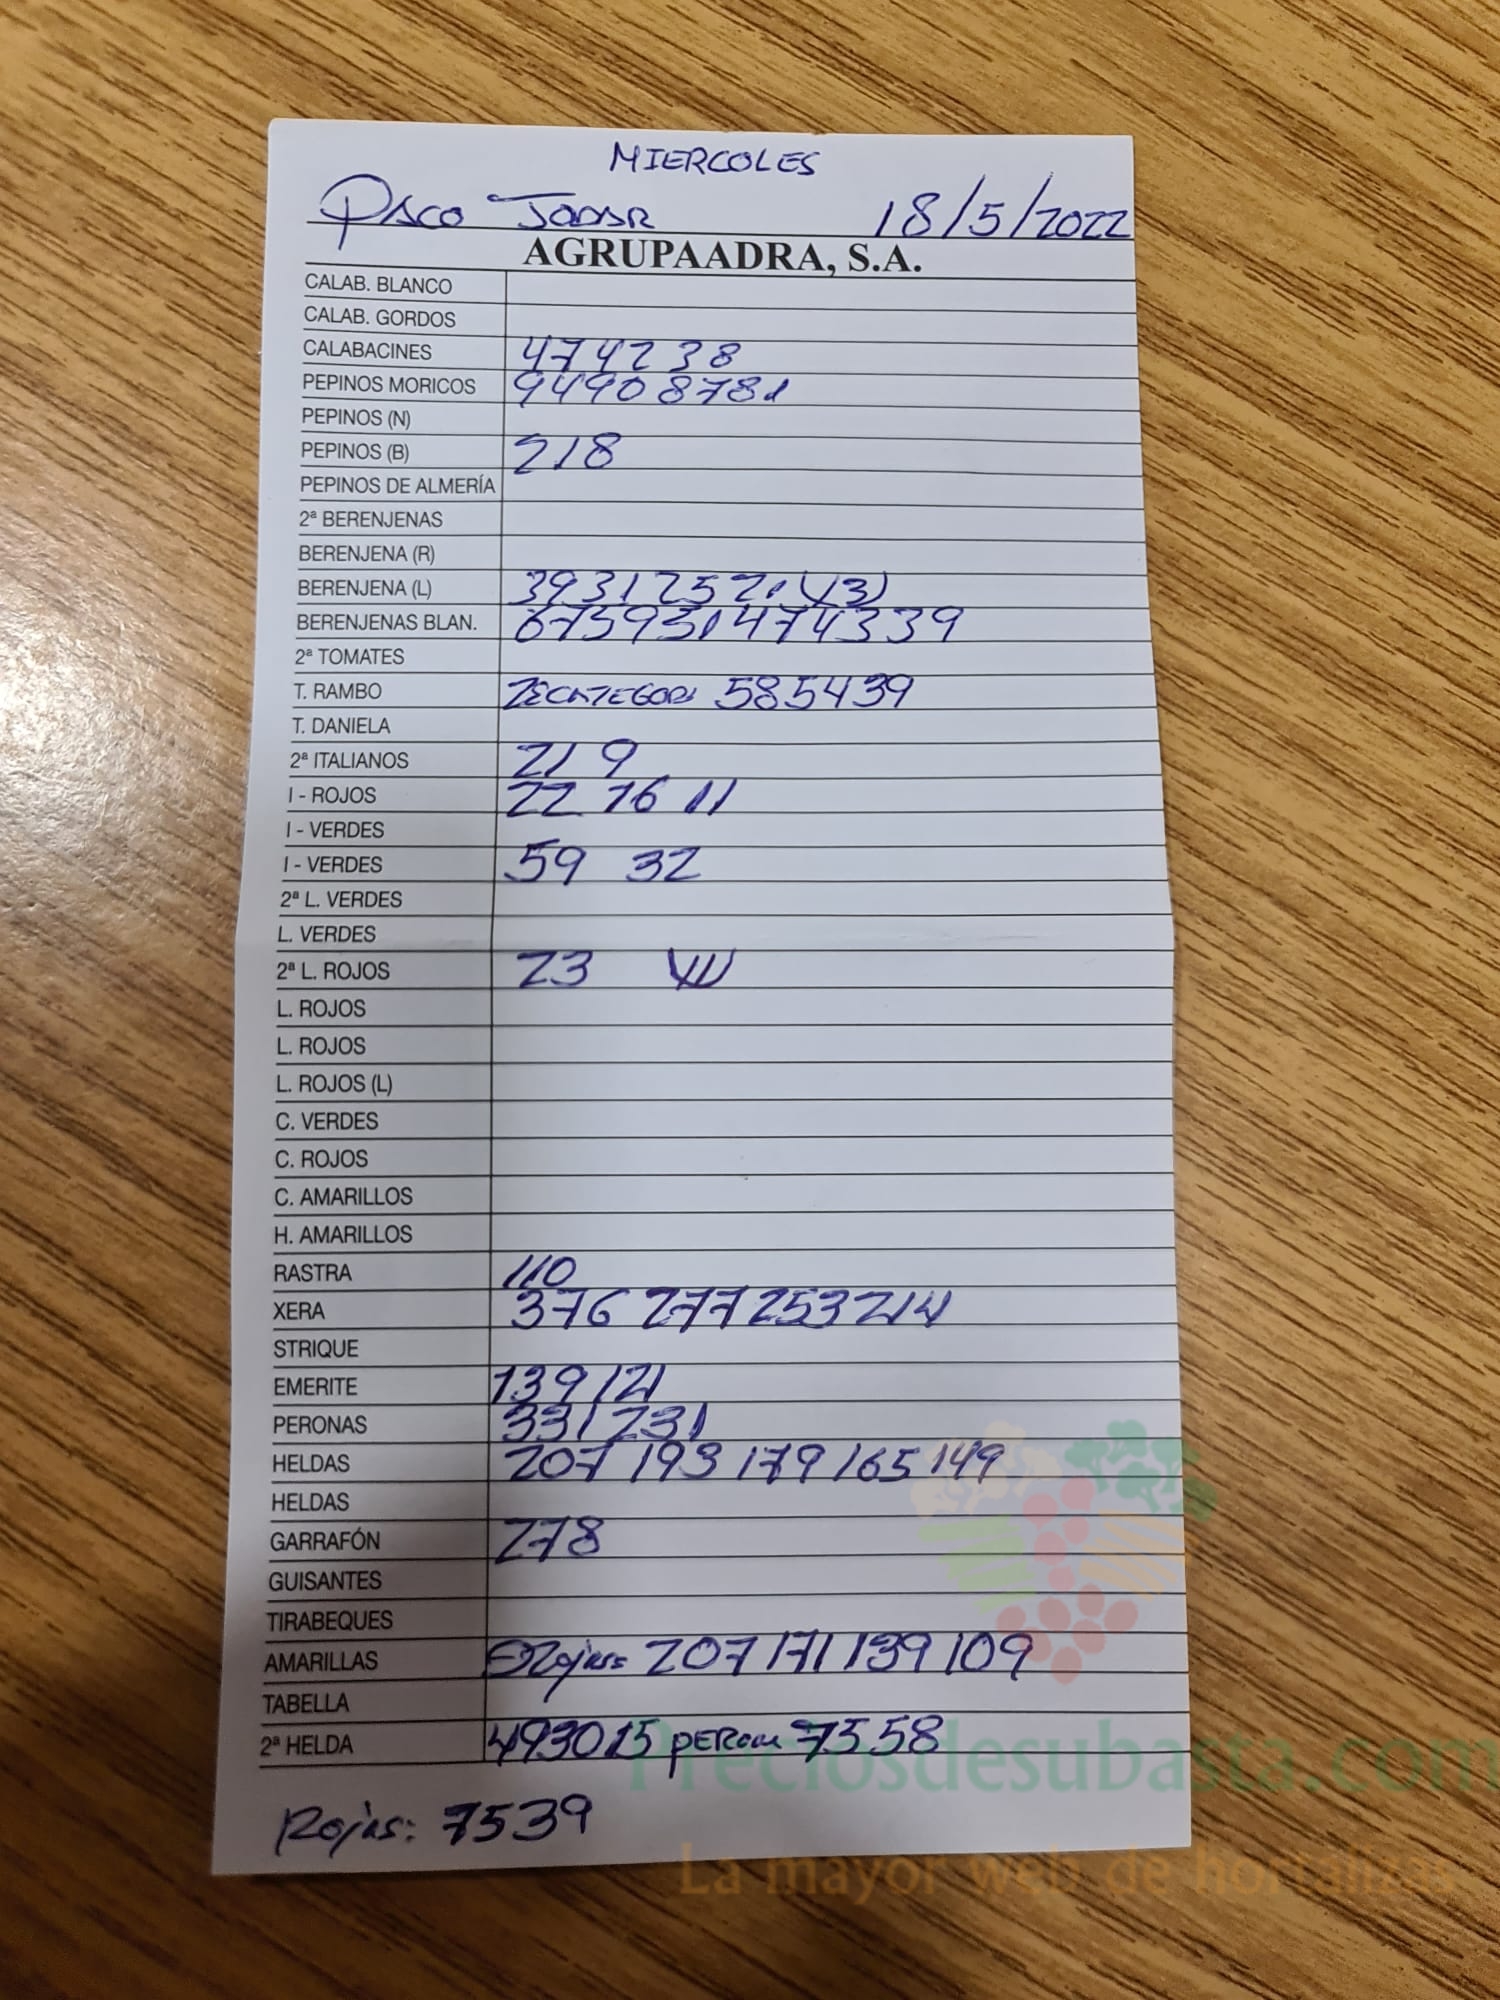 MIERCOLES
Paco Jodar 18/5/2022
AGRUPAADRA, S.A.
CALAB. BLANCO
CALAB. GORDOS
CALABACINES 474238
PEPINOS MORICOS 94908781
PEPINOS (N)
PEPINOS (B) 218
PEPINOS DE ALMERÍA
2ª BERENJENAS
BERENJENA (R)
BERENJENA (L) 39312521 (13)
BERENJENAS BLAN. 675951474339
2ª TOMATES
T. RAMBO 585439
T. DANIELA
2ª ITALIANOS 21 9
I - ROJOS 22 16 11
I - VERDES
I - VERDES 59 32
2ª L. VERDES
L. VERDES
2ª L. ROJOS 23
L. ROJOS
L. ROJOS
L. ROJOS (L)
C. VERDES
C. ROJOS
C. AMARILLOS
H. AMARILLOS
RASTRA 110
XERA 376 277 253 214
STRIQUE
EMERITE 139 121
PERONAS 331 231
HELDAS 207 193 179 165 149
HELDAS
GARRAFÓN 278
GUISANTES
TIRABEQUES
AMARILLAS Rojas= 207 171 139 109
TABELLA
2ª HELDA 493015 PERONA 7558
Rojas: 7539
Preciosdesubasta.com
La mayor web de hortalizas